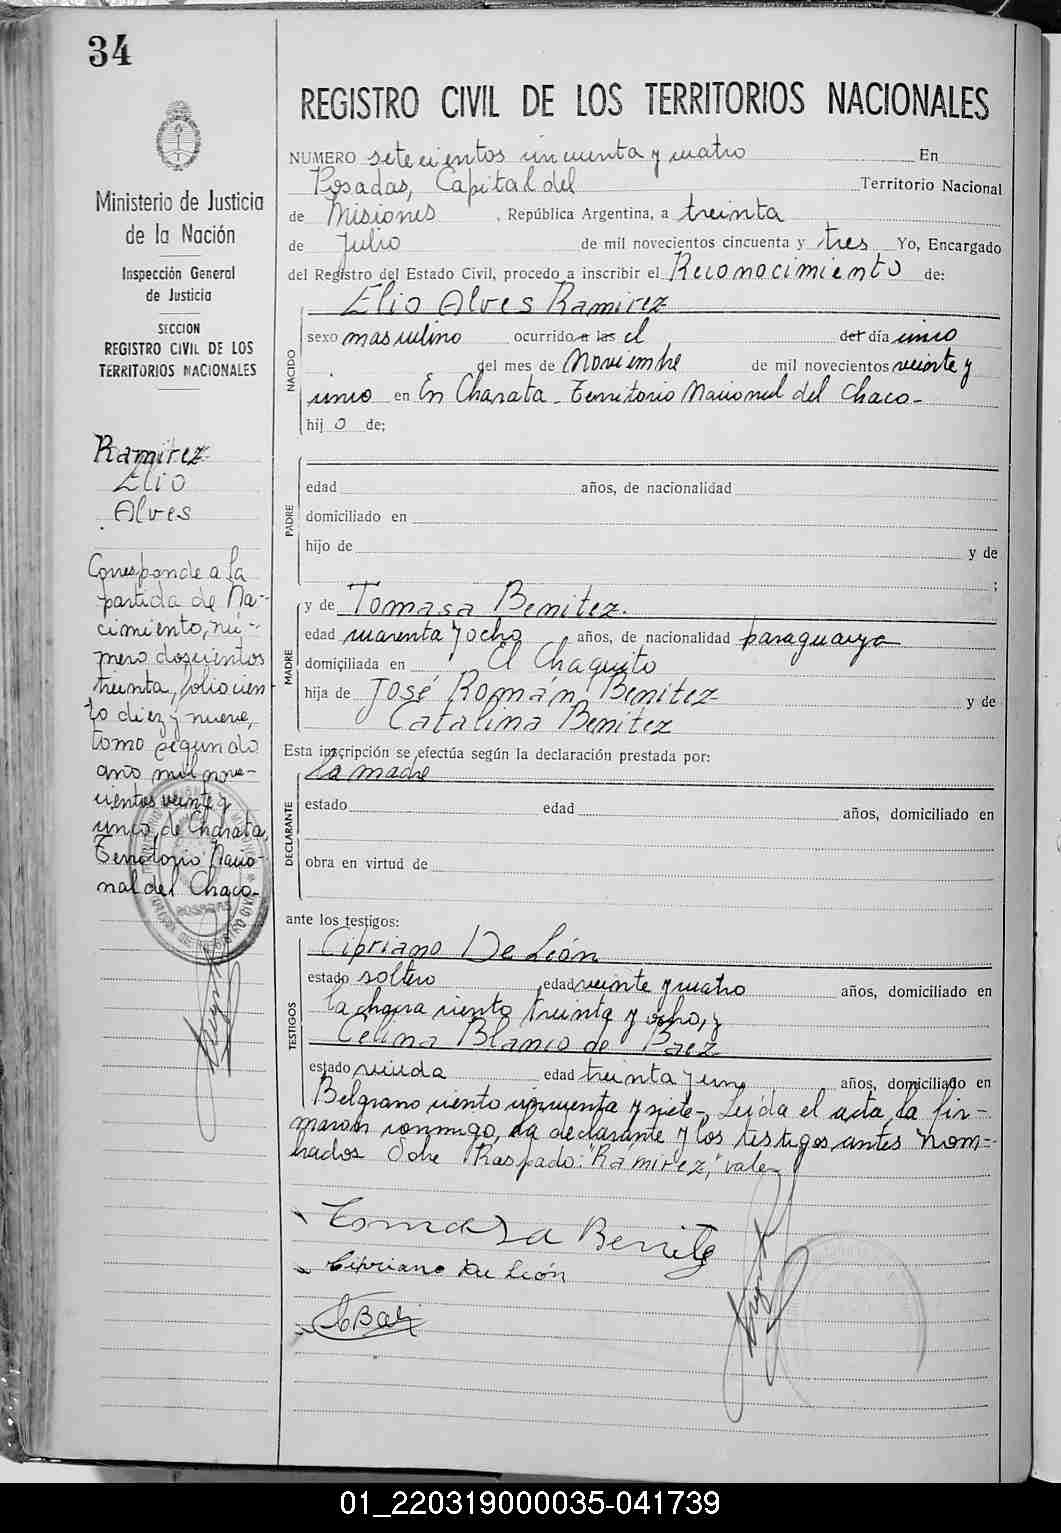 34
Ministerio de Justicia
de la Nación
Inspección General
de Justicia
SECCION
REGISTRO CIVIL DE LOS
TERRITORIOS NACIONALES
Ramirez
Elio
Alves
Corresponde a la
partida de Na-
cimiento, nú-
mero doscientos
treinta, folio cien
to diez y nueve,
tomo segundo
año mil nove-
cientos veinte y
unco, de Charata,
Territorio Nacio-
nal del Chaco-
POSADAS
REGISTRO CIVIL DE LOS TERRITORIOS NACIONALES
NUMERO setecientos cincuenta y cuatro En
Posadas, Capital del Territorio Nacional
de Misiones, República Argentina, a treinta
de Julio de mil novecientos cincuenta y tres Yo, Encargado
del Registro del Estado Civil, procedo a inscribir el Reconocimiento de:
Elio Alves Ramirez
NACIDO
sexo masculino ocurrido a las el del día cinco
del mes de Noviembre de mil novecientos veinte y
cinco en En Charata - Territorio Nacional del Chaco-
hij o de;
PADRE
edad años, de nacionalidad
domiciliado en
hijo de y de
;
MADRE
y de Tomasa Benitez.
edad cuarenta y ocho años, de nacionalidad paraguaya
domiciliada en El Chaquito
hija de José Román Benitez y de
Catalina Benitez
Esta inscripción se efectúa según la declaración prestada por:
la madre
DECLARANTE
estado edad años, domiciliado en
obra en virtud de
ante los testigos:
TESTIGOS
Cipriano De León
estado soltero edad veinte y cuatro años, domiciliado en
la chacra ciento treinta y ocho, y
Celina Blanco de Baez
estado viuda edad treinta y un años, domiciliado en
Belgrano ciento cincuenta y siete-, Leída el acta, la fir-
maron conmigo, la declarante y los testigos antes nom-
brados Sobre Raspado: "Ramirez," vale-
Tomasa Benitez
Cipriano de León
01_220319000035-041739